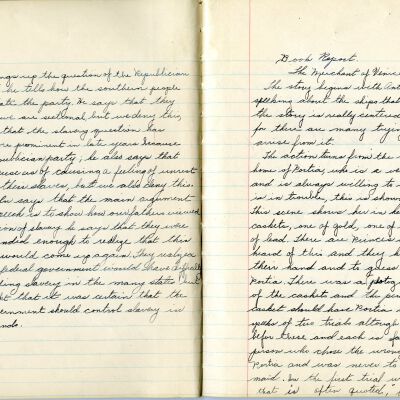 ngs up the question of the Republican
he tells how the southern people
ate the party. He says that they
we are sectional but we deny this,
that the slaving question has
re prominent in late years because
publican party; he also says that
us of causing a feeling of unrest
their slaves, but we also deny this.
ln says that the main argument
eech is to show how our fathers viewed
ion of slaving he says that they were
nded enough to realize that this
would come up again. They realized
federal government would have difficulty
ling slavery in the many states but
t that it was certain that the
ernment should control slavery in
nds.
Book Report.
The Merchant of Venice
The story begins with Ant
speaking about the ships that
the story is really centered
for there are many trying
arise from it.
The action turns from the
home of Portia, who is a ve
and is always willing to
is in trouble, this is shown
This scene shows her in he
caskets, one of gold, one of
of lead. There are Princes
heard of this and they
their hand and to guess
Portia. There was a
of the caskets and the per
casket should have Portia
speaks of two trials although
before these and each is fa
person who chose the wrong
Portia and was never to
maid. In the first trial w
that is often quoted,"